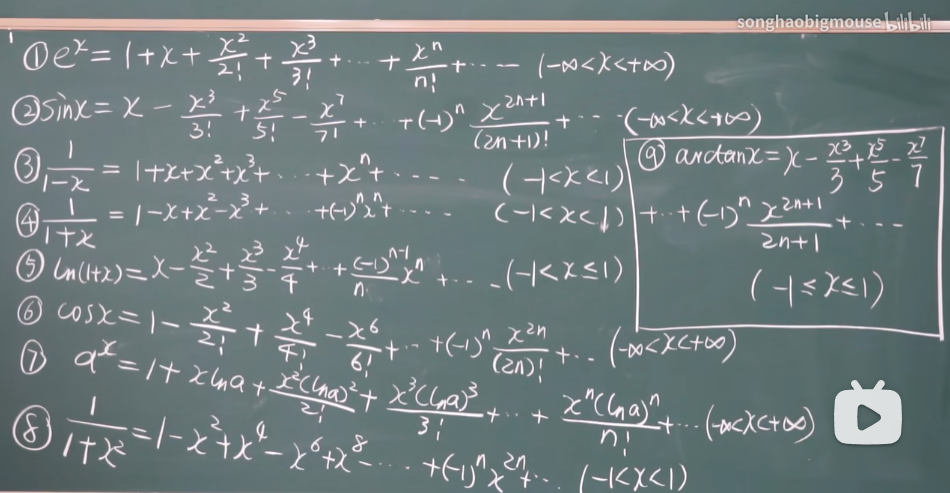 songhaobigmouse bilibili
① eˣ = 1 + x + x²/2! + x³/3! + ··· + xⁿ/n! + ···· (-∞<x<+∞)
② sinx = x - x³/3! + x⁵/5! - x⁷/7! + ·· + (-1)ⁿ x²ⁿ⁺¹/(2n+1)! + ··· (-∞<x<+∞)
③ 1/(1-x) = 1+x+x²+x³+··· +xⁿ+····· (-1<x<1)
④ 1/(1+x) = 1-x+x²-x³+·· +(-1)ⁿxⁿ+···· (-1<x<1)
⑤ ln(1+x) = x - x²/2 + x³/3 - x⁴/4 + ·· + (-1)ⁿ⁻¹/n xⁿ + ···· (-1<x≤1)
⑥ cosx = 1 - x²/2! + x⁴/4! - x⁶/6! + ·· + (-1)ⁿ x²ⁿ/(2n)! + ·· (-∞<x<+∞)
⑦ aˣ = 1 + xlna + x²(lna)²/2! + x³(lna)³/3! + ·· + xⁿ(lna)ⁿ/n! + ·· (-∞<x<+∞)
⑧ 1/(1+x²) = 1-x²+x⁴-x⁶+x⁸-···· +(-1)ⁿx²ⁿ+·· (-1<x<1)
⑨ arctanx = x - x³/3 + x⁵/5 - x⁷/7
+ ·· + (-1)ⁿ x²ⁿ⁺¹/2n+1 + ····
(-1≤x≤1)